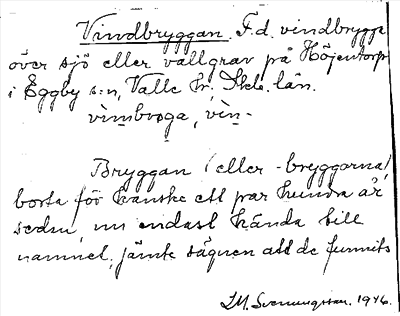 Vindbryggan. F.d. vindbrygga
över sjö eller vallgrav på Höjentorp
i Eggby s:n, Valle hr. Skb. län.
vìmbroga, vìn-
Bryggan (eller -bryggorna)
borta för kanske ett par hundra år
sedan, nu endast kända till
namnet, jämte sägnen att de funnits
LM. Svenungsson. 1946.